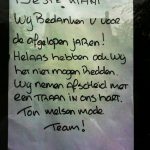 BESTE KLANT
Wij Bedanken U voor
de afgelopen jaren!
Helaas hebben ook Wij
het niet mogen Redden
Wij nemen afscheid met
een TRAAN in ons hart.
Ton melsen mode
Team!